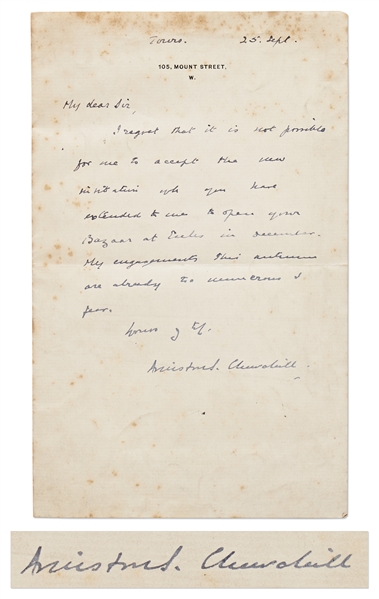 Tours. 25. Sept.
105, MOUNT STREET,
W.
My dear Sir,
I regret that it is not possible
for me to accept the new
invitation wh you have
extended to me to open your
Bazaar at Eccles in December.
My engagements this autumn
are already too numerous I
fear.
Yours
Winston S. Churchill.
Winston S. Churchill